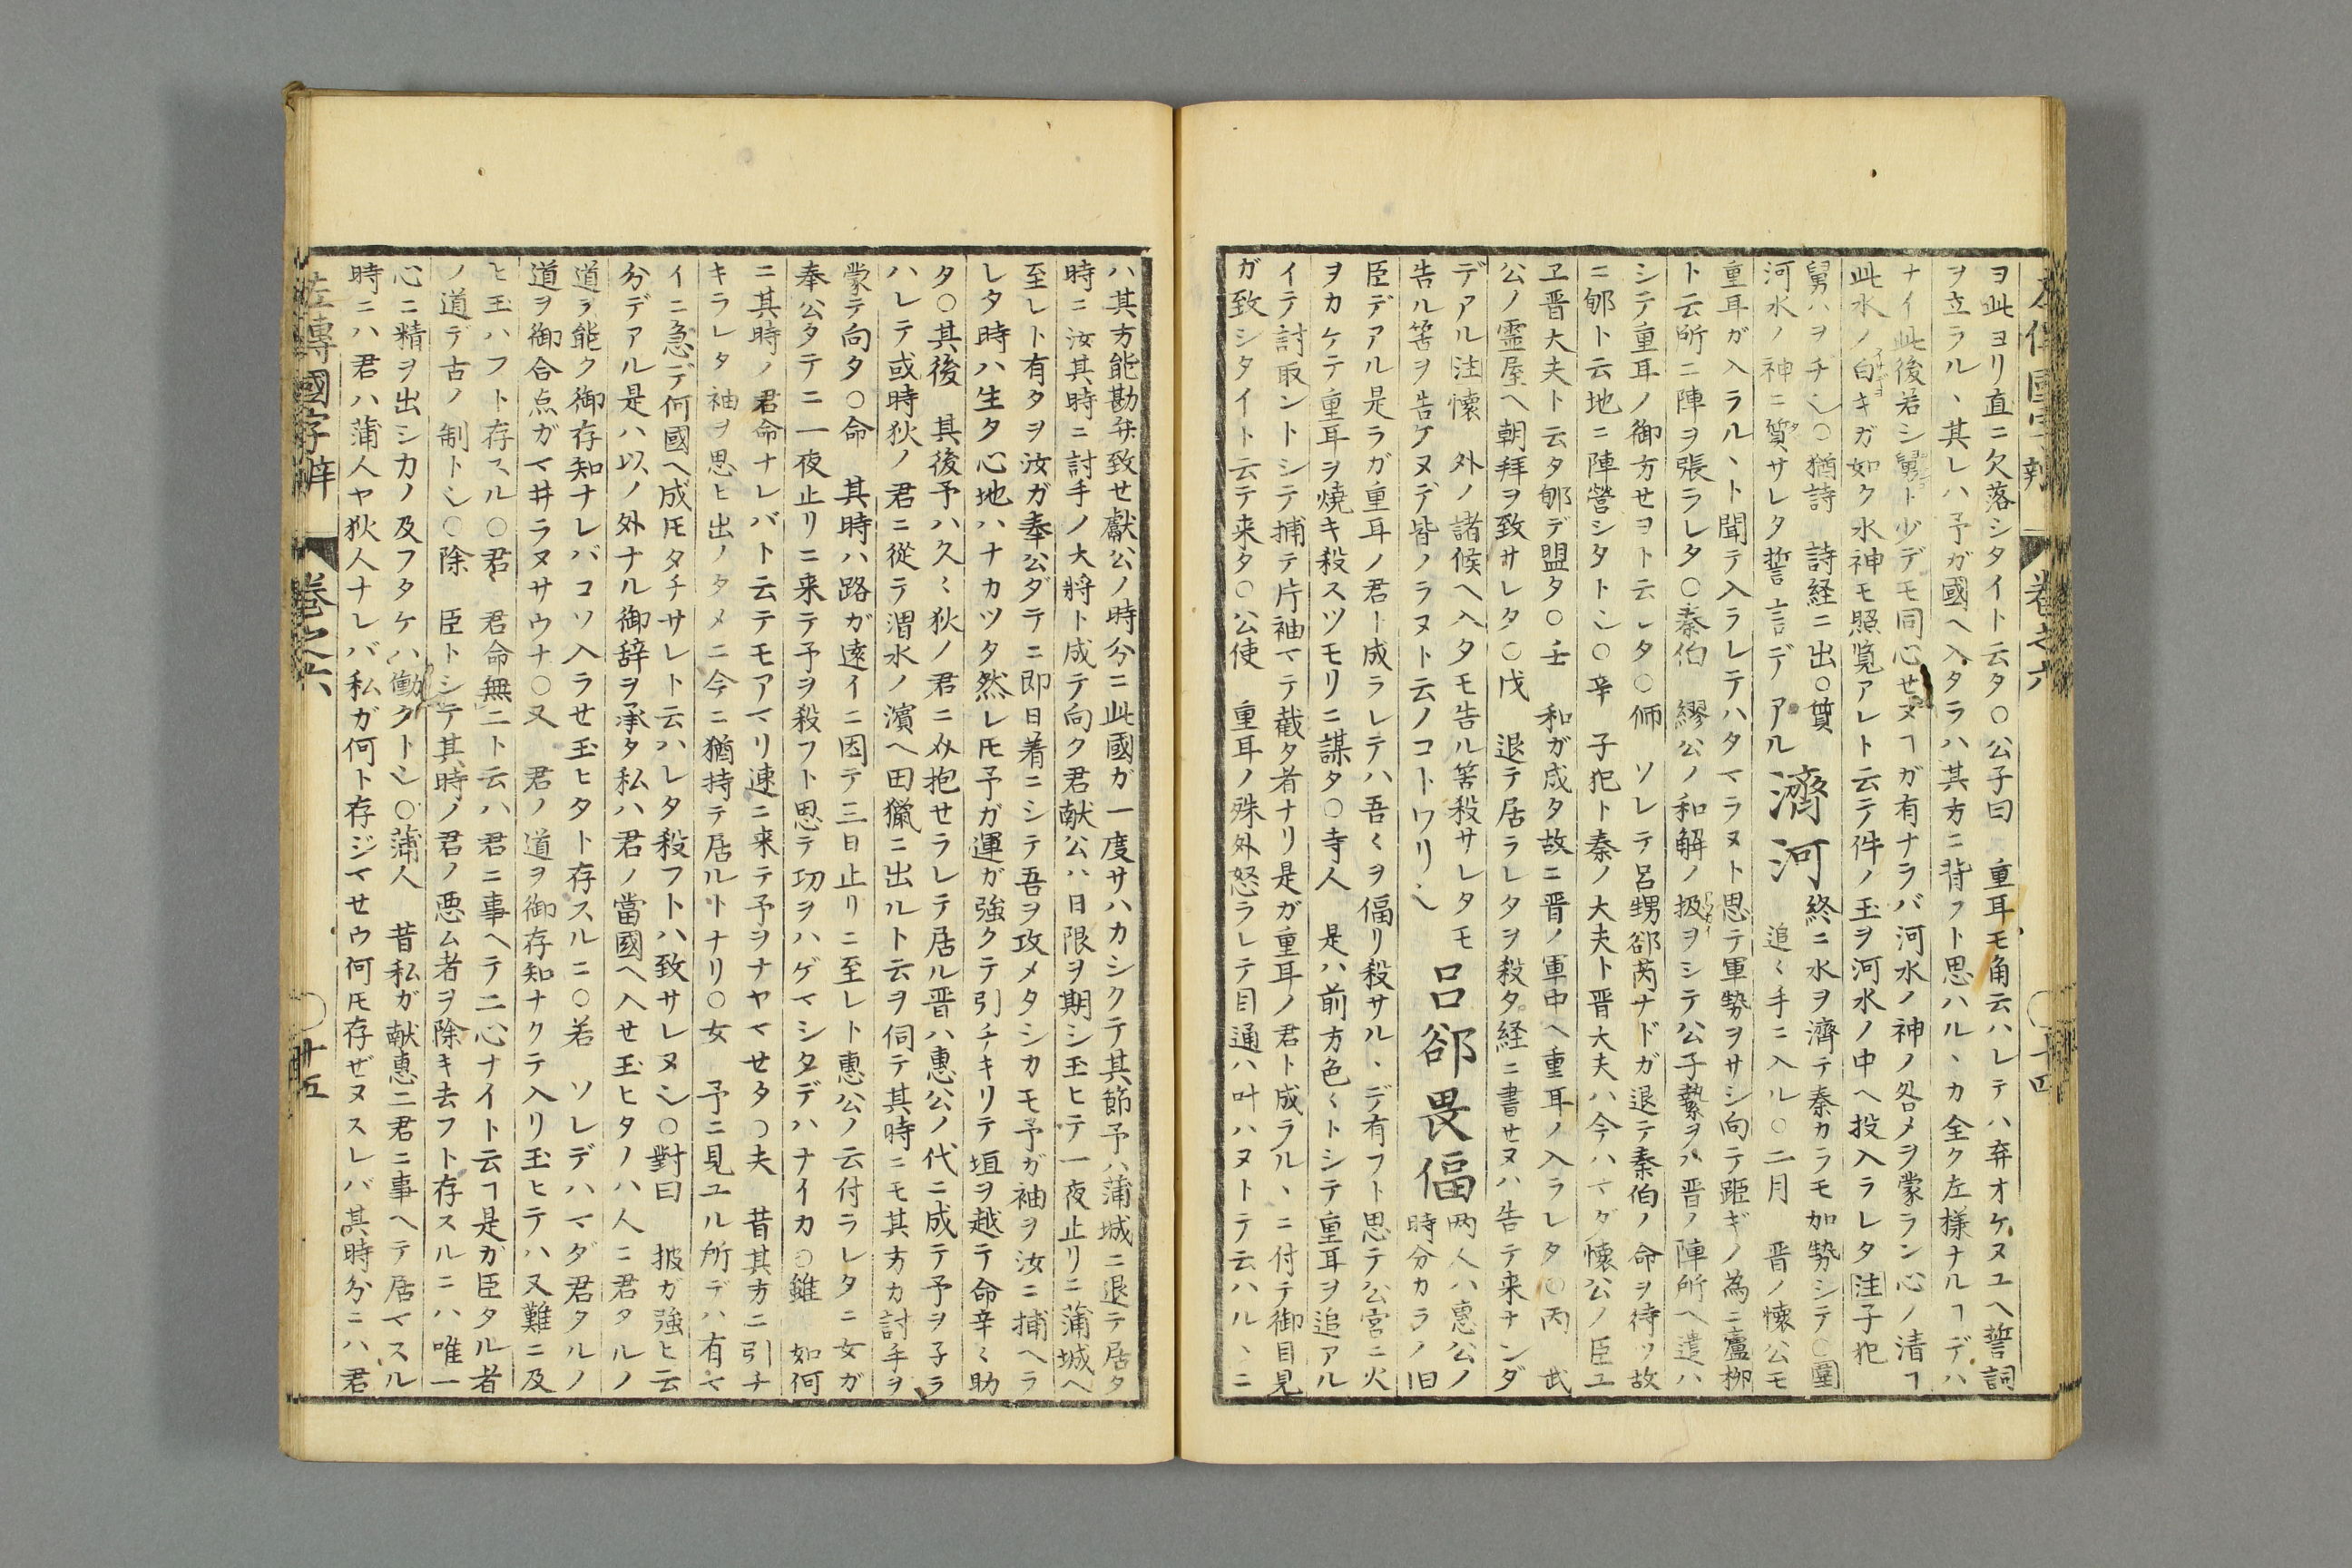 左傳國字辨 卷之六 ○十四
ヨ此ヨリ直ニ欠落シタイト云タ○公子曰 重耳モ角云ハレテハ弃オケヌユヘ誓詞
ヲ立ラル丶其レハ予ガ國ヘ入タラハ其方ニ背フト思ハル丶カ全ク左様ナルヿデハ
ナイ此後若シ舅ト少デモ同心せヌヿガ有ナラバ河水ノ神ノ咎メヲ蒙ラン心ノ清ヿ
此水ノ白キガ如ク水神モ照覧アレト云テ件ノ玉ヲ河水ノ中ヘ投入ラレタ注子犯
舅ハヲヂ乀○猶詩 詩経ニ出○質 終ニ水ヲ濟テ秦カラモ加勢シテ○圍
河水ノ神ニ質サレタ誓言デアル 濟河 追〻手ニ入ル○二月 晋ノ懐公モ
重耳ガ入ラル丶ト聞テ入ラレテハタマラヌト思テ軍勢ヲサシ向テ距ギノ為ニ廬柳
ト云所ニ陣ヲ張ラレタ○秦伯 繆公ノ和解ノ扱ヲシテ公子縶ヲハ晋ノ陣所ヘ遣ハ
シテ重耳ノ御方せヨト云レタ○師 ソレテ呂甥郤芮ナドガ退テ秦伯ノ命ヲ待ツ故
ニ郇ト云地ニ陣營シタト乀○辛 子犯ト秦ノ大夫ト晋大夫ハ今ハマダ懐公ノ臣ユ
ヱ晋大夫ト云タ郇デ盟タ○壬 和ガ成タ故ニ晋ノ軍中ヘ重耳ノ入ラレタ○丙 武
公ノ霊屋ヘ朝拜ヲ致サレタ○戊 退テ居ラレタヲ殺タ経ニ書せヌハ告テ来ナンダ
デアル注懐 外ノ諸候ヘ入タモ告ル筈殺サレタモ 呂郤畏偪 両人ハ惠公ノ
告ル筈ヲ告ケヌデ皆ノラヌト云ノコトワリ乀 時分カラノ旧
臣デアル是ラガ重耳ノ君ト成ラレテハ吾〻ヲ偪リ殺サル丶デ有フト思テ公宮ニ火
ヲカケテ重耳ヲ焼キ殺スツモリニ謀タ○寺人 是ハ前方色〻トシテ重耳ヲ追アル
イテ討取ントシテ捕テ片袖マテ截タ者ナリ是ガ重耳ノ君ト成ラル丶ニ付テ御目見
ガ致シタイト云テ来タ○公使 重耳ノ殊外怒ラレテ目通ハ叶ハヌトテ云ハル丶ニ
ハ其方能勘弁致せ獻公ノ時分ニ此國ガ一度サハカシクテ其節予ハ蒲城ニ退テ居タ
時ニ汝其時ニ討手ノ大將ト成テ向ク君献公ハ日限ヲ期シ玉ヒテ一夜止リニ蒲城ヘ
至レト有タヲ汝ガ奉公ダテニ即日着ニシテ吾ヲ攻メタシカモ予ガ袖ヲ汝ニ捕ヘラ
レタ時ハ生タ心地ハナカツタ然レ𪜈予ガ運ガ強クテ引チキリテ垣ヲ越テ命辛〻助
タ○其後 其後予ハ久〻狄ノ君ニ𠬧抱せラレテ居ル晋ハ惠公ノ代ニ成テ予ヲ子ラ
ハレテ或時狄ノ君ニ從テ渭水ノ濱ヘ田獵ニ出ルト云ヲ伺テ其時ニモ其方カ討手ヲ
蒙テ向タ○命 其時ハ路ガ遠イニ因テ三日止リニ至レト惠公ノ云付ラレタニ女ガ
奉公タテニ一夜止リニ来テ予ヲ殺フト思テ功ヲハゲマシタデハナイカ○雖 如何
ニ其時ノ君命ナレバト云テモアマリ速ニ来テ予ヲナヤマせタ○夫 昔其方ニ引チ
キラレタ袖ヲ思ヒ出ノタメニ今ニ猶持テ居ルトナリ○女 予ニ見ユル所デハ有マ
イニ急デ何國ヘ成𪜈タチサレト云ハレタ殺フトハ致サレヌ乀○對曰 披ガ強ヒ云
分デアル是ハ以ノ外ナル御辞ヲ承タ私ハ君ノ當國ヘ入せ玉ヒタノハ人ニ君タルノ
道ヲ能ク御存知ナレバコソ入ラせ玉ヒタト存スルニ○若 ソレデハマダ君タルノ
道ヲ御合点ガマ井ラヌサウナ○又 君ノ道ヲ御存知ナクテ入リ玉ヒテハ又難ニ及
ヒ玉ハフト存スル○君 君命無二ト云ハ君ニ事ヘテ二心ナイト云ヿ是ガ臣タル者
ノ道デ古ノ制ト乀○除 臣トシテ其時ノ君ノ悪ム者ヲ除キ去フト存スルニハ唯一
心ニ精ヲ出シカノ及フタケハ働クト乀○蒲人 昔私ガ献惠二君ニ事ヘテ居マスル
時ニハ君ハ蒲人ヤ狄人ナレバ私ガ何ト存ジマせウ何𪜈存ぜヌスレバ其時分ニハ君
左傳國字辨 卷之六 ○廿五